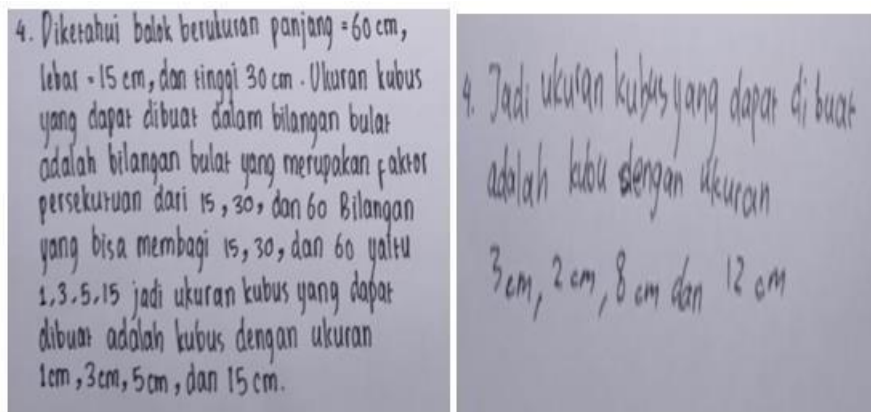 4. Diketahui balok berukuran panjang = 60 cm,
lebar = 15 cm, dan tinggi 30 cm. Ukuran kubus
yang dapat dibuat dalam bilangan bulat
adalah bilangan bulat yang merupakan faktor
persekutuan dari 15, 30, dan 60 Bilangan
yang bisa membagi 15, 30, dan 60 yaitu
1,3.5.15 jadi ukuran kubus yang dapat
dibuat adalah kubus dengan ukuran
1cm, 3cm, 5cm, dan 15 cm.
4. Jadi ukuran kubus yang dapat di buat
adalah kubu dengan ukuran
3 cm, 2 cm, 8 cm dan 12 cm